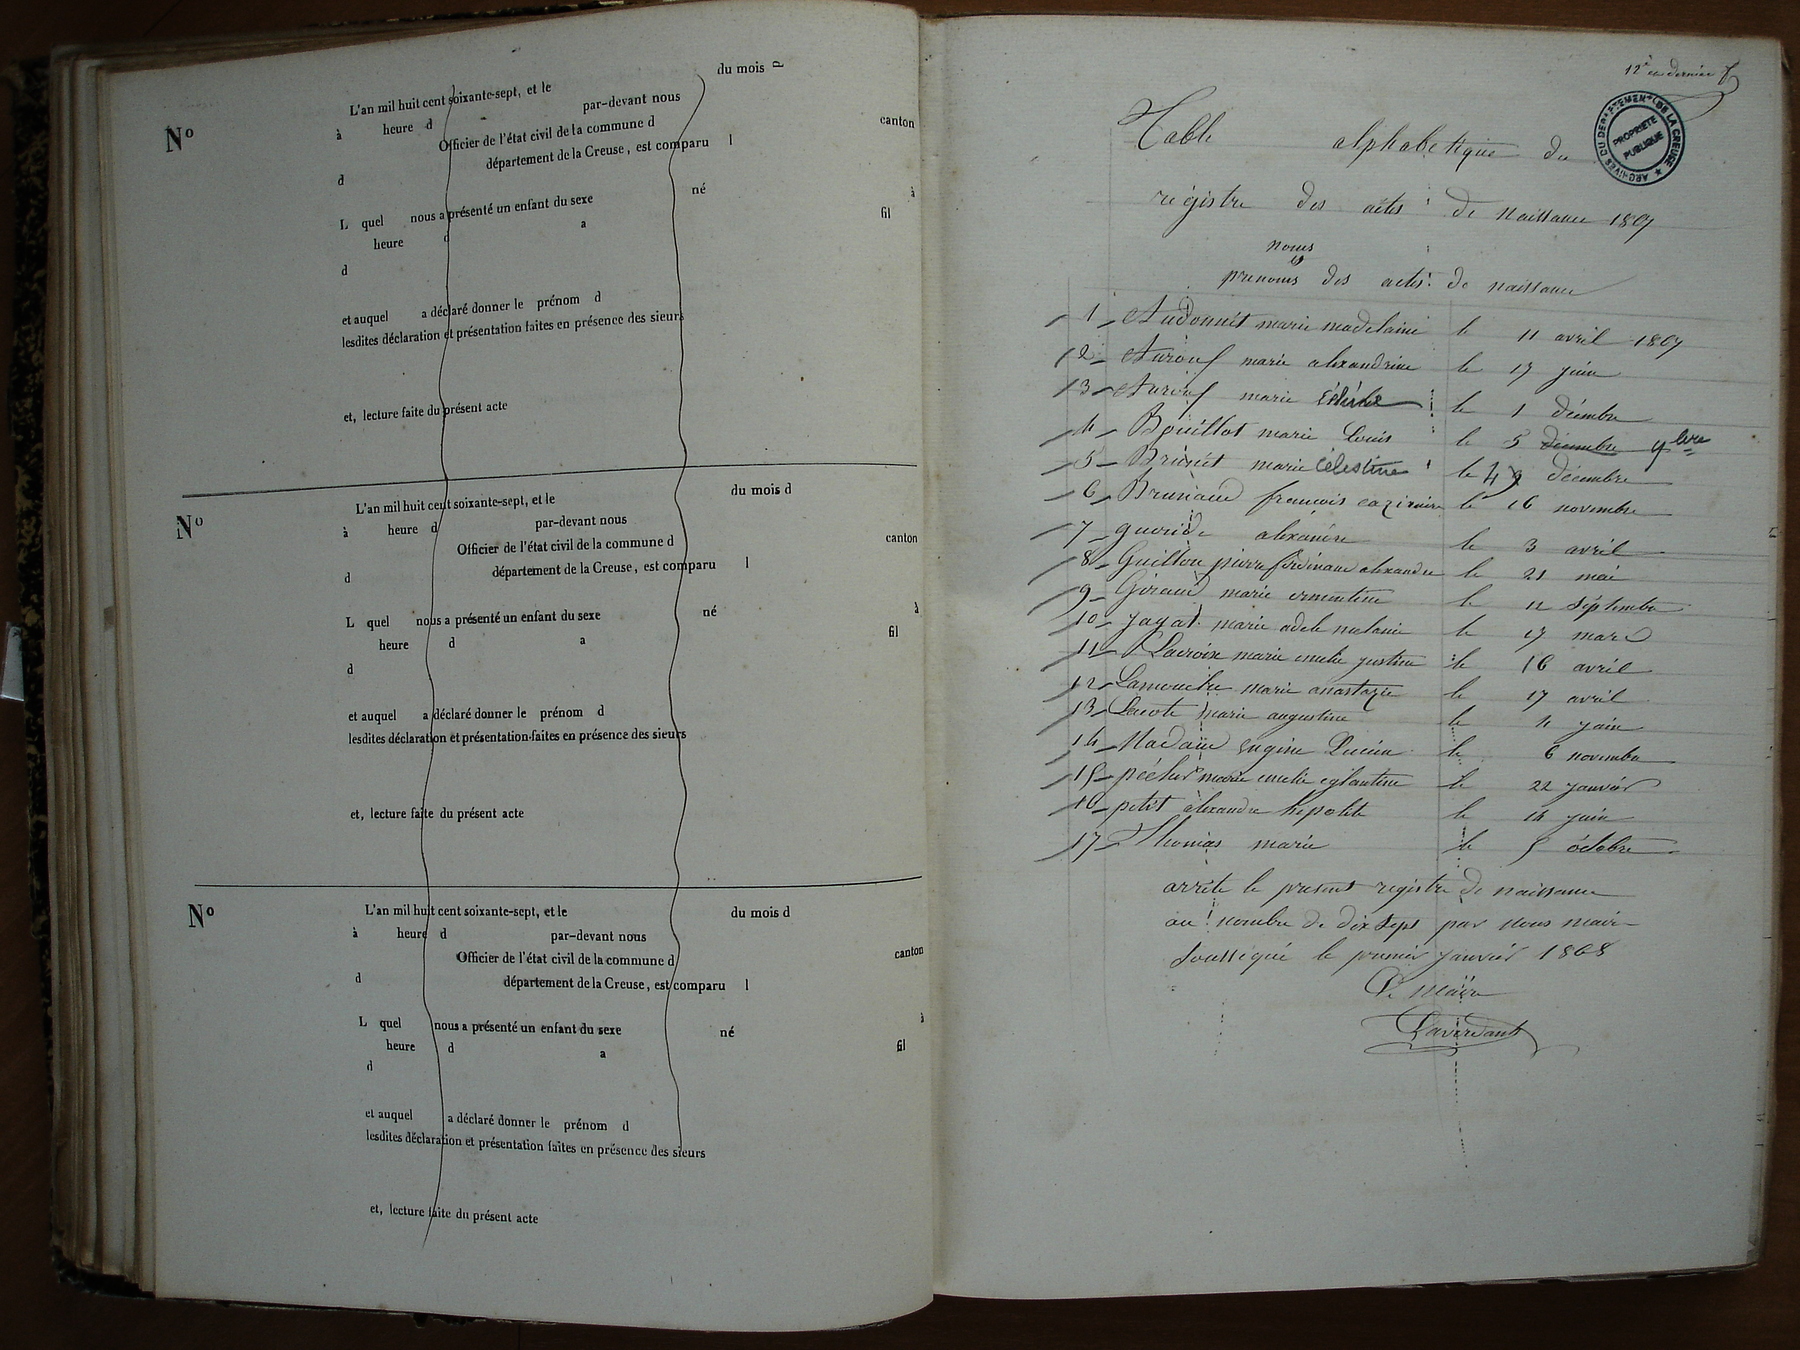 L'an mil huit cent soixante-sept, et le du mois d
à heure d par-devant nous
Nº
Officier de l'état civil de la commune d canton
d département de la Creuse, est comparu l
L quel nous a présenté un enfant du sexe né à
heure d a fil
d
et auquel a déclaré donner le prénom d
lesdites déclaration et présentation faites en présence des sieurs
et, lecture faite du présent acte
L'an mil huit cent soixante-sept, et le du mois d
Nº
à heure d par-devant nous
Officier de l'état civil de la commune d canton
d département de la Creuse, est comparu l
L quel nous a présenté un enfant du sexe né à
heure d a fil
d
et auquel a déclaré donner le prénom d
lesdites déclaration et présentation faites en présence des sieurs
et, lecture faite du présent acte
Nº
L'an mil huit cent soixante-sept, et le du mois d
à heure d par-devant nous
Officier de l'état civil de la commune d canton
d département de la Creuse, est comparu l
L quel nous a présenté un enfant du sexe né à
heure d a fil
d
et auquel a déclaré donner le prénom d
lesdites déclaration et présentation faites en présence des sieurs
et, lecture faite du présent acte
12e et dernier
ARCHIVES DU DEPARTEMENT DE LA CREUSE
PROPRIETE PUBLIQUE
Table alphabetique du
régistre des actes de naissance 1867
noms
et
prenoms des actes de naissance
1 Audonnet marie madelaine le 11 avril 1867
2 marie alexandrine le 17 juin
3 marie le 1 décembre
4 Bouillot marie Louis le 5 décembre 9bre
5 Brunet marie célestine le 4 décembre
6 Bruniaud françois cazimire le 16 novembre
7 alexandre le 3 avril
8 Guillon pierre ferdinand alexandre le 21 mai
9 Giraud marie ermentine le 12 septembre
10 Jagat marie adele melanie le 17 mars
11 Lacroix marie emelie justine le 16 avril
12 Lamouche marie anastazie le 17 avril
13 Lacote marie augustine le 4 juin
14 Nadaud eugine Lucien le 6 novembre
15 marie emelie eglantine le 22 janvier
16 petit alexandre hipolite le 14 juin
17 Thomas marie le 5 octobre
arrête le present registre de naissance
au nombre de dix sept par nous maire
soussigné le premier janvier 1868
Le maire
Laverdant